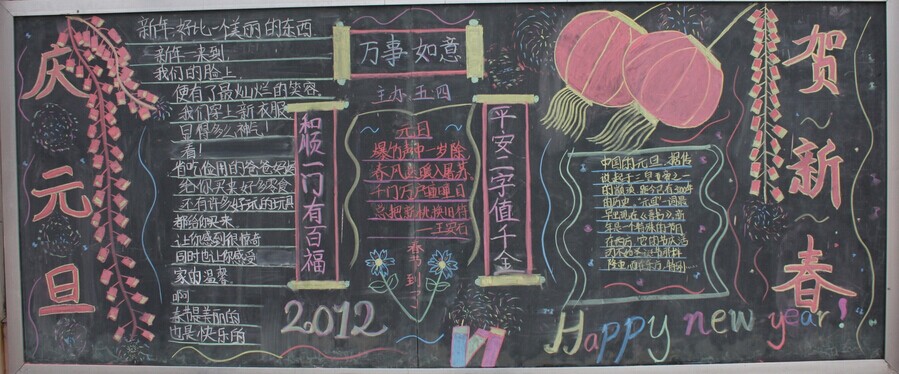 庆元旦
新年,好比一个美丽的东西
新年一来到
我们的脸上,
便有了最灿烂的笑容
我们穿上新衣服
显得多么神气!
看!
省吃俭用的爸爸妈妈
给你买来好多零食
还有许多好玩的玩具
都给你买来
让你感到很惊奇
同时也让你感受
家的温馨
啊
春节是美丽的
也是快乐的
万事如意
主办 五四
和顺一门有百福
元日
爆竹声中一岁除
春风送暖入屠苏
千门万户曈曈日
总把新桃换旧符
—王安石
春节到
平安二字值千金
2012
中国的元旦,据传
说起于三皇五帝之一
的颛顼,距今已有3000年
的历史,“元旦”一词最
早出现在《晋书》
Happy new year!
贺~新~春